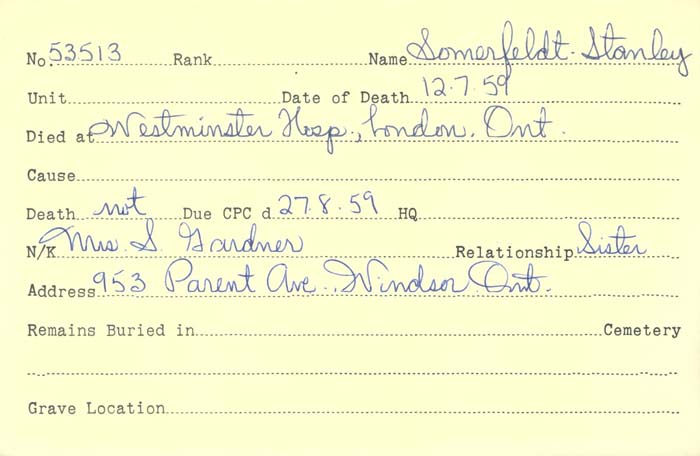 No 53513 Rank Name Somerfeldt. Stanley
Unit Date of Death 12.7.59
Died at Westminster Hosp., London. Ont.
Cause
Death not Due CPC d 27.8.59 HQ
N/K Mrs. S. Gardner Relationship Sister
Address 953 Parent Ave., Windsor. Ont.
Remains Buried in Cemetery
Grave Location